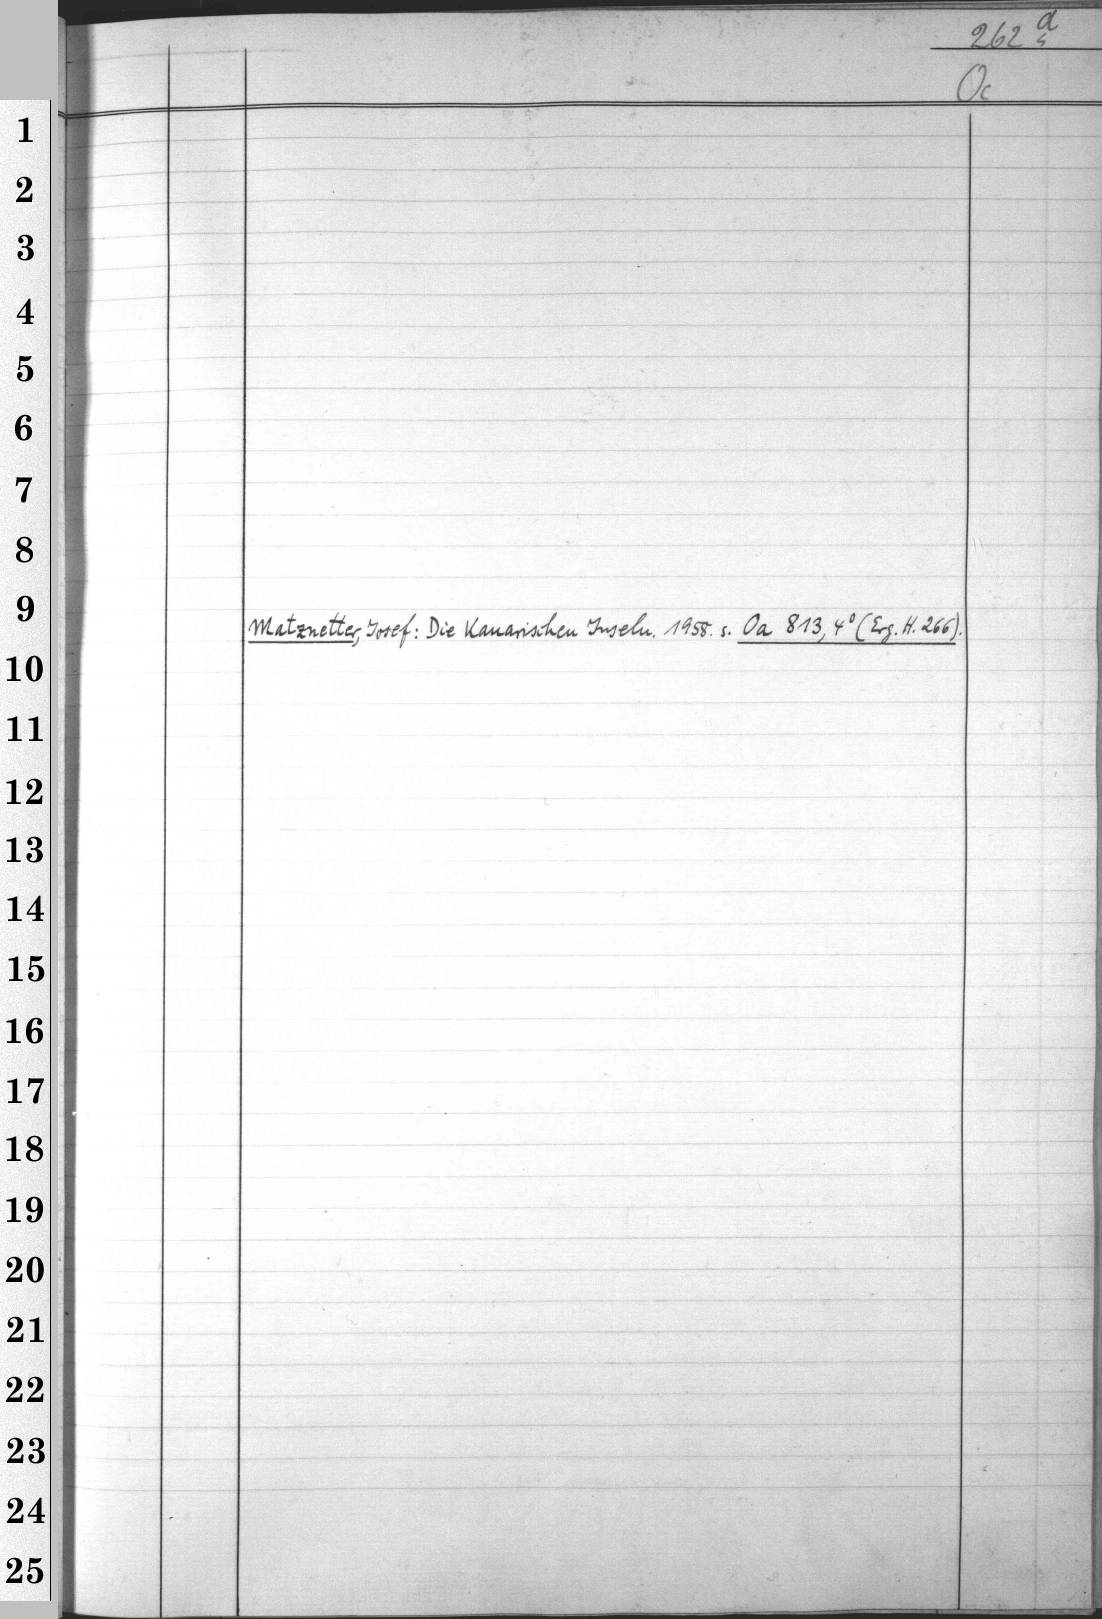 262 d
Oc
1
2
3
4
5
6
7
8
9
Matznetter, Josef: Die Kanarischen Inseln. 1958. s. Oa 813, 4° (Erg. H. 266).
10
11
12
13
14
15
16
17
18
19
20
21
22
23
24
25